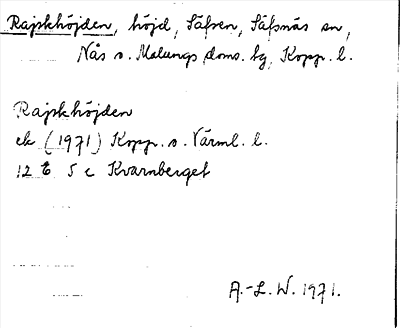 Rajskhöjden, höjd, Säfsen, Säfsnäs sn,
Nås o. Malungs doms. hg, Kopp. l.
Rajskhöjden
ek (1971) Kopp. o. Värml. l.
12 E 5 c Kvarnberget
A.-L. W. 1971.